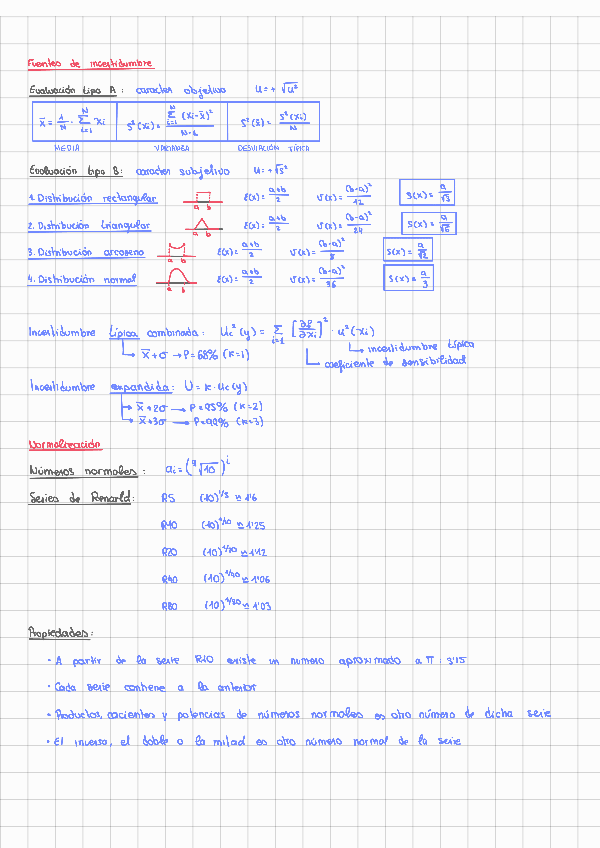 Fuentes de incertidumbre
Evaluación tipo A: caracter objetivo u = + √u²
x̄ = 1/N · Σ_{i=1}^{N} xi   S²(xi) = Σ_{i=1}^{N} (xi - x̄)² / N-1   S²(x̄) = S²(xi)/N
MEDIA VARIANZA DESVIACIÓN TÍPICA
Evaluación tipo B: caracter subjetivo u = + √s²
1. Distribución rectangular a b E(x) = a+b/2 V(x) = (b-a)²/12 S(x) = a/√3
2. Distribución triangular a b E(x) = a+b/2 V(x) = (b-a)²/24 S(x) = a/√6
3. Distribución arcoseno a b E(x) = a+b/2 V(x) = (b-a)²/8 S(x) = a/√2
4. Distribución normal a b E(x) = a+b/2 V(x) = (b-a)²/36 S(x) = a/3
Incertidumbre típica combinada: Uc²(y) = Σ_{i=1} [∂f/∂xi]² · u²(xi)
x̄ + σ → P = 68% (K=1)
incertidumbre típica
coeficiente de sensibilidad
Incertidumbre expandida: U = K · uc(y)
x̄ + 2σ → P = 95% (K=2)
x̄ + 3σ → P = 99% (K=3)
Normalización
Números normales: ai = (ⁿ√10)^i
Series de Renarld: R5 (10)^1/5 ≃ 1'6
R10 (10)^1/10 ≃ 1'25
R20 (10)^1/20 ≃ 1'12
R40 (10)^1/40 ≃ 1'06
R80 (10)^1/80 ≃ 1'03
Propiedades:
· A partir de la serie R10 existe un numero aproximado a π: 3'15
· Cada serie contiene a la anterior
· Productos, cocientes y potencias de números normales es otro número de dicha serie
· El inverso, el doble o la mitad es otro número normal de la serie